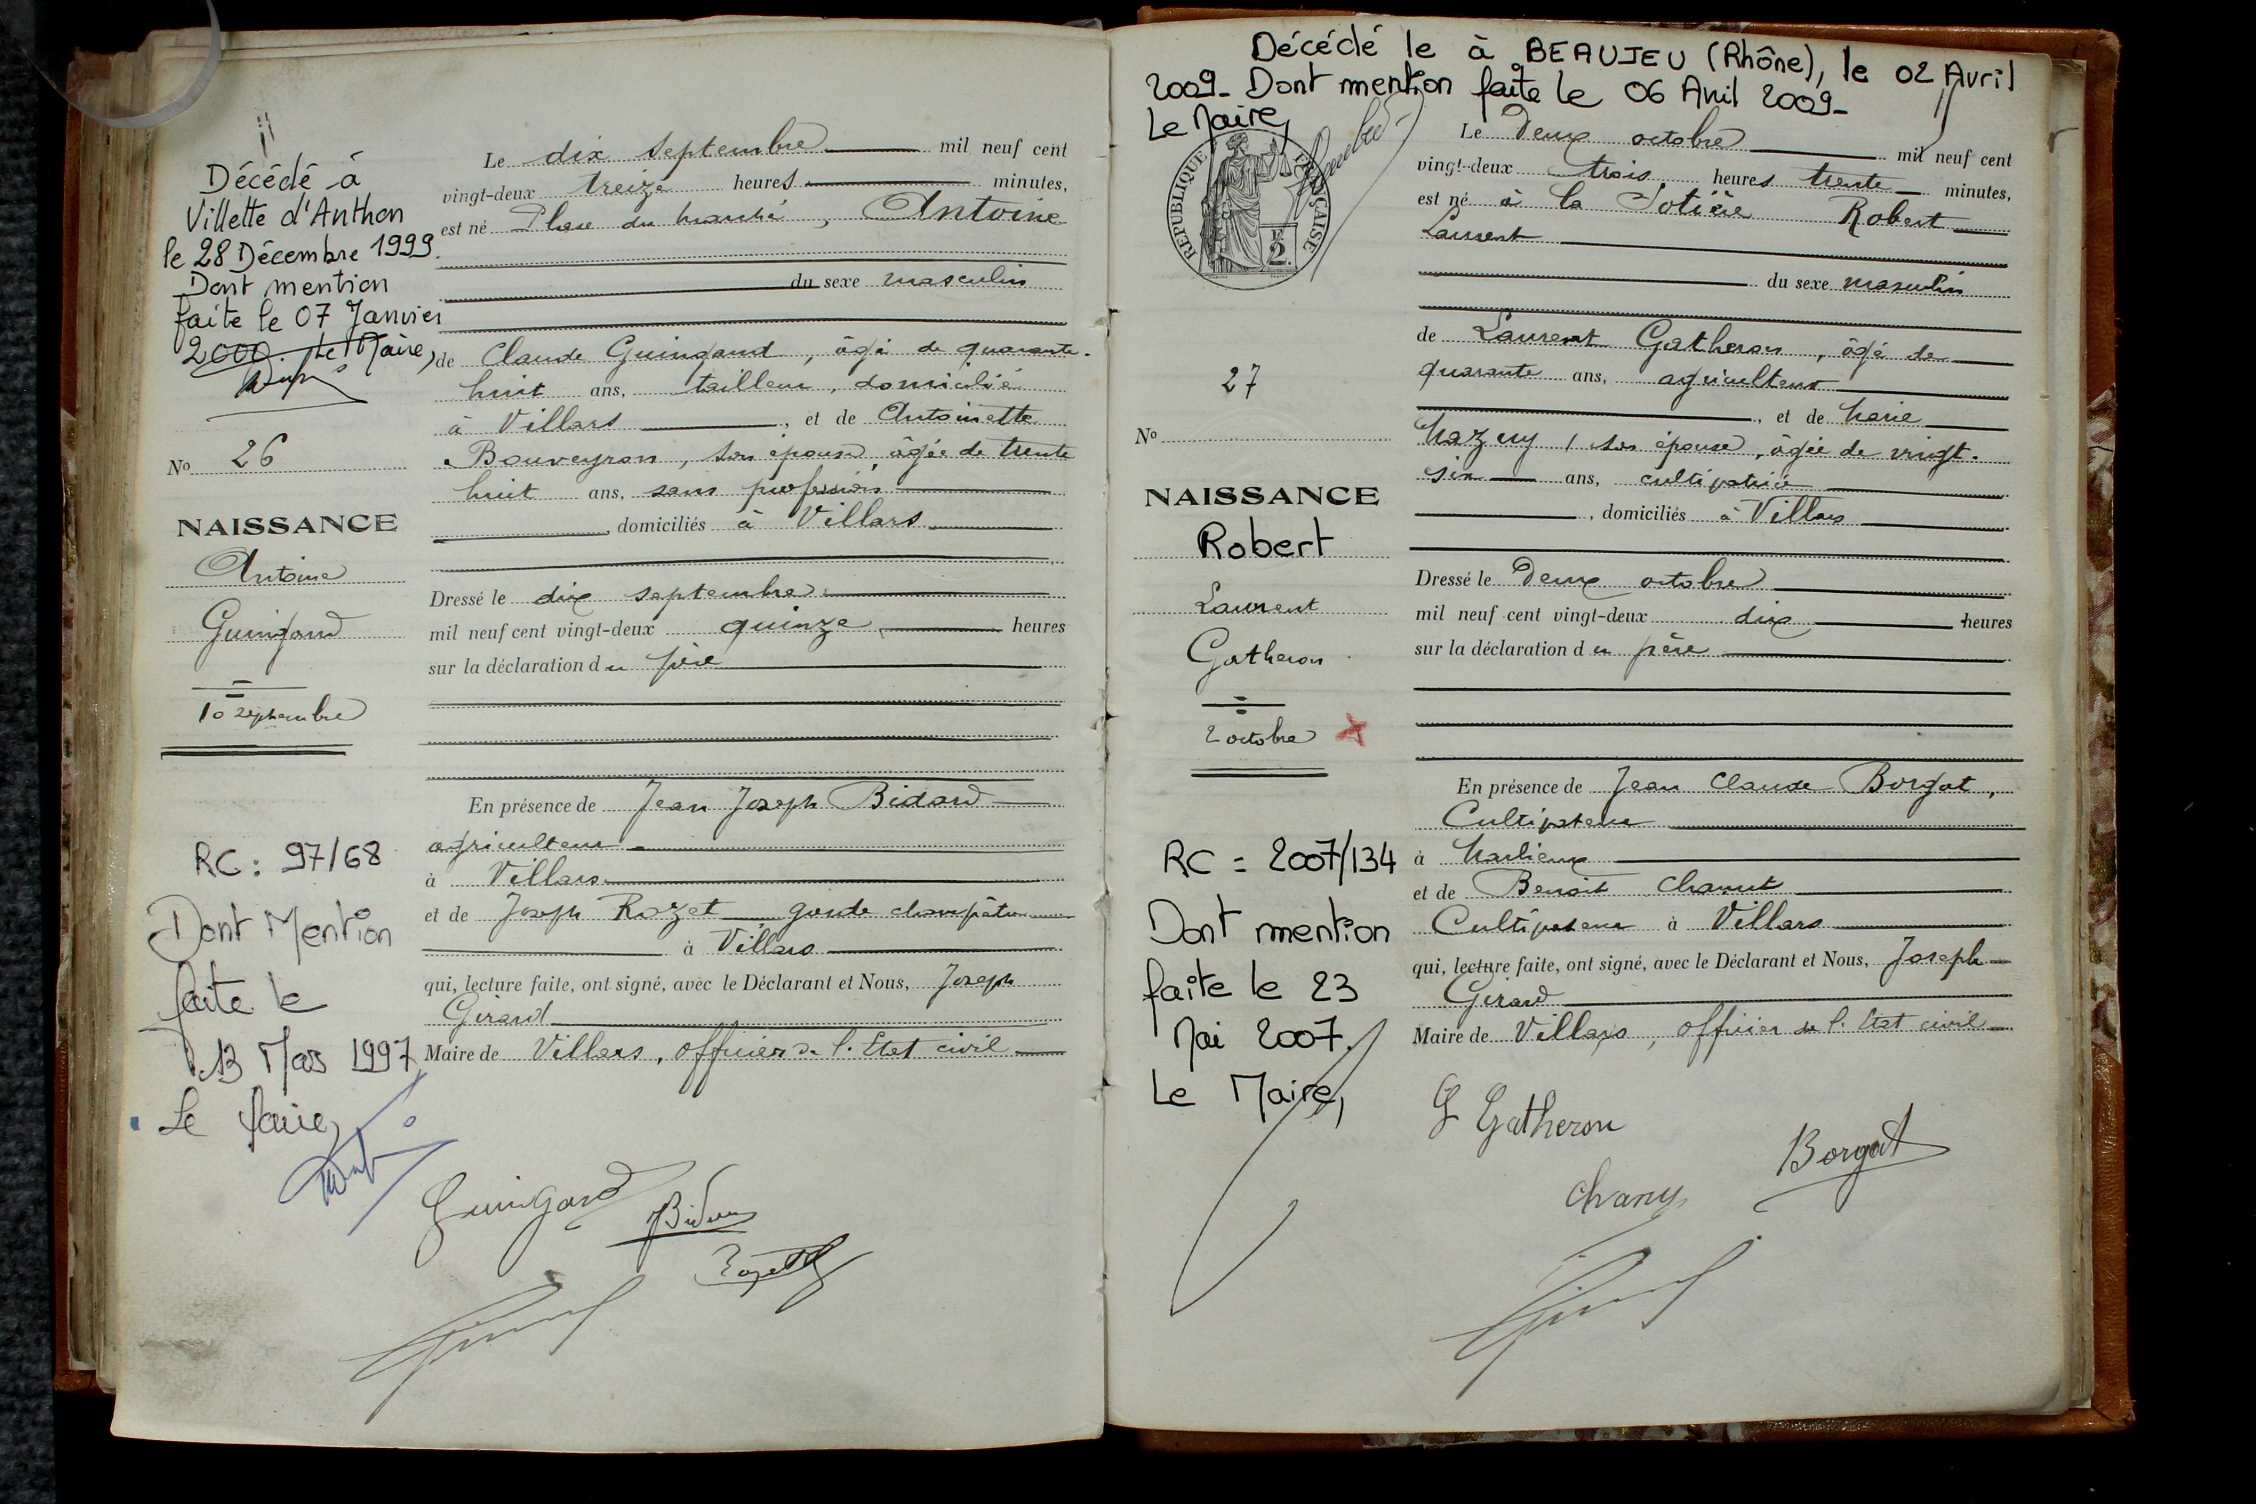 Décédé à
Villette d'Anthon
le 28 Décembre 1999.
Dont mention
faite le 07 Janvier
2000. Le Maire,
No 26
NAISSANCE
Antoine
Guingand
10 septembre
RC : 97/68
Dont Mention
faite le
13 Mars 1997
Le Maire,
Le dix septembre mil neuf cent
vingt-deux treize heures minutes,
est né Place du marché, Antoine
du sexe masculin
de Claude Guingand, âgé de quarante-
huit ans, tailleur, domicilié
à Villars, et de Antoinette
Bouveyron, son épouse, âgée de trente
huit ans, sans profession
, domiciliés à Villars
Dressé le dix septembre
mil neuf cent vingt-deux quinze heures
sur la déclaration du père
En présence de Jean Joseph Bidard
agriculteur
à Villars
et de Joseph Rozet garde champêtre
à Villars
qui, lecture faite, ont signé, avec le Déclarant et Nous, Joseph
Girard
Maire de Villars, officier de l'Etat civil
Guingand
Décédé le à BEAUJEU (Rhône), le 02 Avril
2009- Dont mention faite le 06 Avril 2009-
Le Maire,
RÉPUBLIQUE FRANÇAISE
2
27
No
NAISSANCE
Robert
Laurent
Gatheron
2 octobre
RC = 2007/134
Dont mention
faite le 23
Mai 2007.
Le Maire,
Le Deux octobre mil neuf cent
vingt-deux trois heures trente minutes,
est né à la Robert
Laurent
du sexe masculin
de Laurent Gatheron, âgé de
quarante ans, agriculteur
, et de Marie
Mazuy, son épouse, âgée de vingt-
six ans, cultivatrice
, domiciliés à Villars
Dressé le Deux octobre
mil neuf cent vingt-deux dix heures
sur la déclaration du père
En présence de Jean Claude Borgat,
Cultivateur
à Marlieux
et de Benoît Chanut
Cultivateur à Villars
qui, lecture faite, ont signé, avec le Déclarant et Nous, Joseph
Girard
Maire de Villars, officier de l'Etat civil
G Gatheron
Borgat